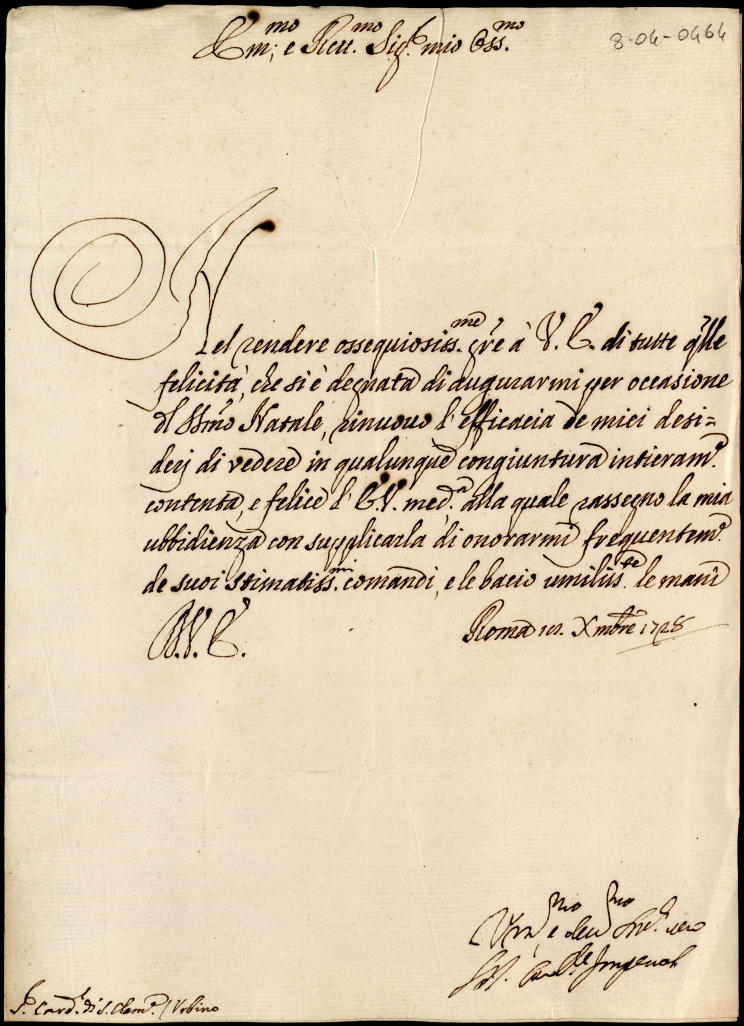 Em:mo e Reu.mo Sig.r mio Oss.mo
8-04-0464
Nel rendere ossequiosiss.me gre à V. E. di tutte qlle
felicità, che si è degnata di augurarmi per occasione
dl SSmo Natale, rinuouo l'efficacia de miei desi=
derj di vedere in qualunque congiuntura intieram.e
contenta, e felice l'E.V. med.a alla quale rassegno la mia
ubbidienza con supplicarla di onorarmi frequentem.e
de suoi stimatiss.mi comandi, e le bacio umiliss.te le mani
D.V.E.
Roma Xmbre 1728
S.r Card.l di S. Clem.e / Urbino